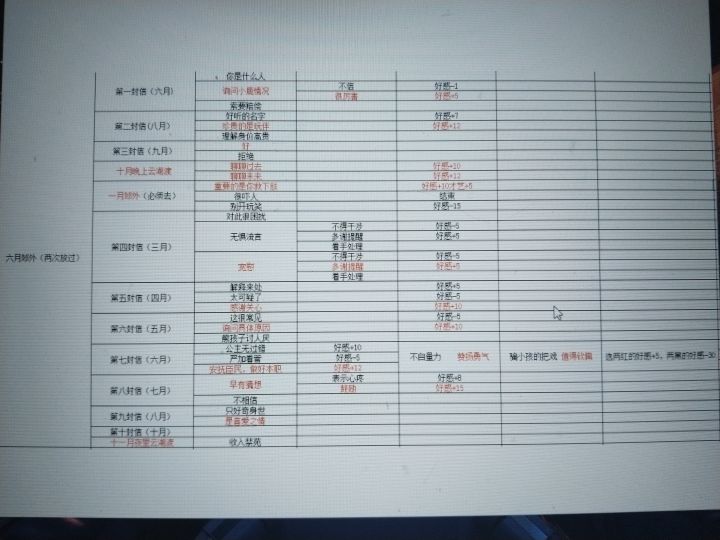 你是什么人
第一封信（六月） 询问小鹿情况 不信 好感-1
很厉害 好感+5
索要赔偿
第二封信（八月） 好听的名字 好感+7
珍贵的是玩伴 好感+12
理解身份高贵
第三封信（九月） 好
拒绝
十月晚上云潮渡 聊聊过去 好感+10
聊聊未来 好感+12
一月郊外（必须去） 重要的是你救下我 好感+10才艺+5
很吓人 结束
别开玩笑 好感-15
第四封信（三月） 对此很困扰
无惧流言 不得干涉 好感-5
多谢提醒 好感+5
着手处理
宽慰 不得干涉 好感-5
多谢提醒 好感+5
着手处理
六月郊外（两次放过）
第五封信（四月） 解释来处 好感+5
太可疑了 好感-5
感谢关心 好感+10
第六封信（五月） 这很常见 好感-5
询问具体原因 好感+10
熊孩子讨人厌
第七封信（六月） 公主无过错 好感+10
严加看管 好感-5 不自量力 赞扬勇气 骗小孩的把戏 值得钦佩 选两红的好感+5，两黑的好感-30
安抚臣民，做好本职 好感+12
第八封信（七月） 早有猜想 表示心疼 好感+8
鼓励 好感+15
不相信
第九封信（八月） 只好奇身世
是喜爱之情
第十封信（十月）
十一月夜里云潮渡 收入禁苑